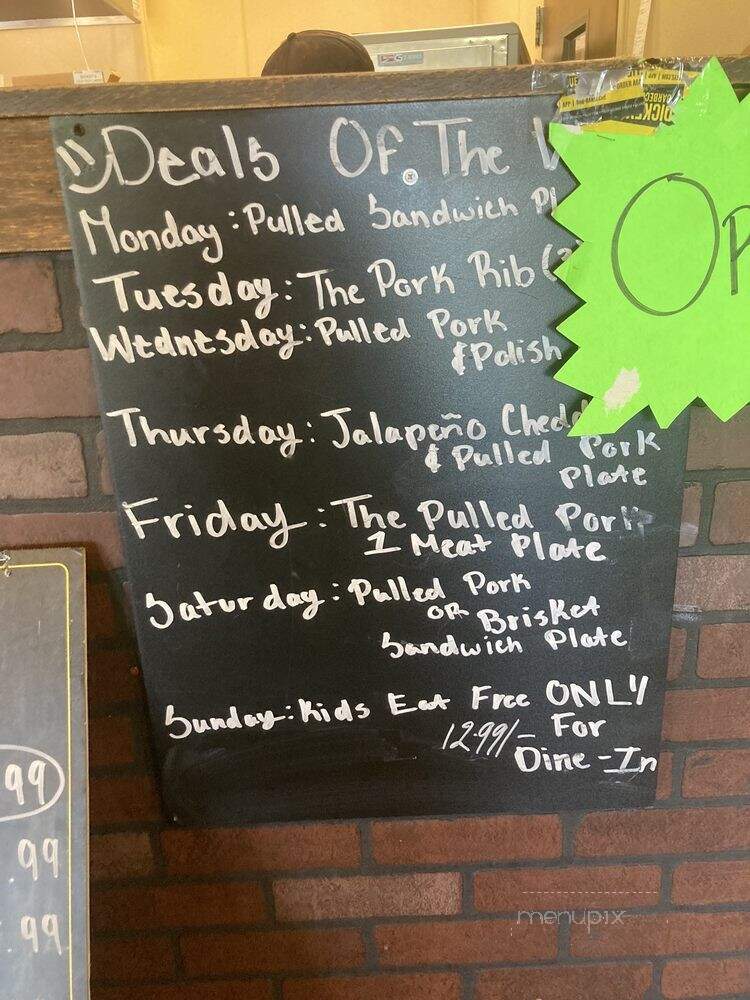 Deals Of The
Monday: Pulled Sandwich
Tuesday: The Pork Rib
Wednesday: Pulled Pork
& Polish
Thursday: Jalapeño
& Pulled Pork
Plate
Friday: The Pulled Pork
1 Meat Plate
Saturday: Pulled Pork
OR Brisket
Sandwich Plate
Sunday: Kids Eat Free ONLY
12.99/- For
Dine-In
99
99
99
menupix